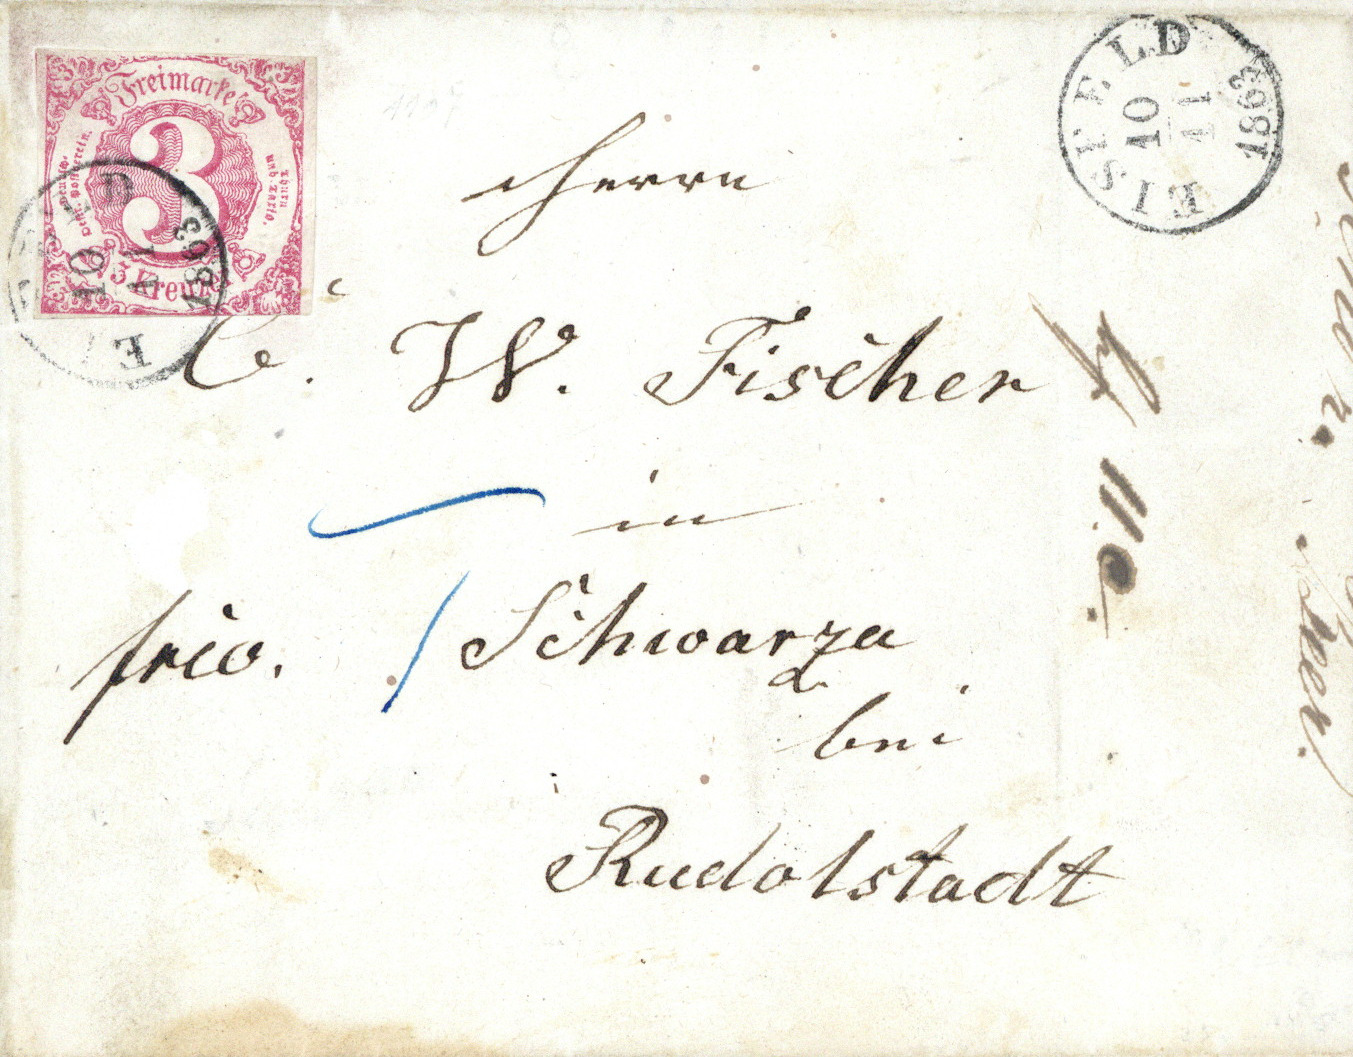 Freimarke
3
Deutsch-
Östr. Postverein.
Thurn
und Taxis.
3 Kreuzer
EISFELD
10
11
1863
EISFELD
10
11
1863
Herrn
C. W. Fischer
in
frco. Schwarza
bei
Rudolstadt